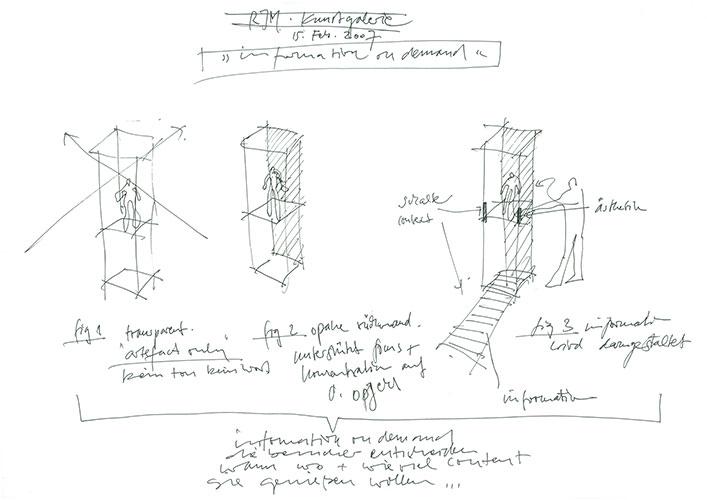 RJM. Kunstgalerie
15. Feb. 2007
" information on demand "
fig 1 transparent.
"artefact only"
kein ton kein wort
fig 2 opake rückwand.
unterstützt focus +
konzentration auf
d. objekt
content
ästhetik
fig 3 information
wird dazugestaltet
information
information on demand
die besucher entscheiden
wann wo + wie viel content
sie genießen wollen ...